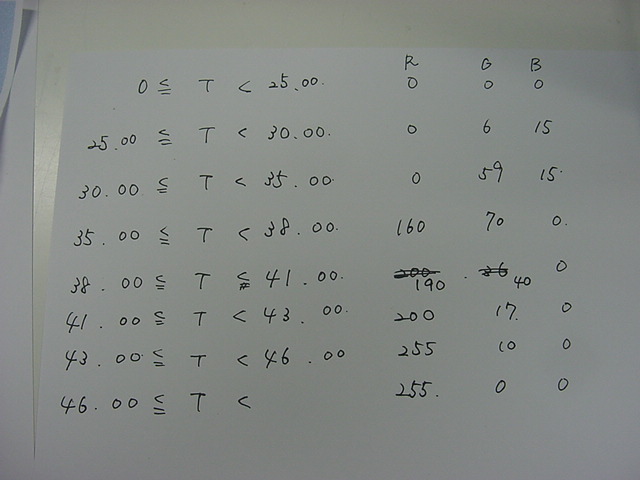 R G B
0 ≦ T < 25.00. 0 0 0
25.00 ≦ T < 30.00. 0 6 15
30.00 ≦ T < 35.00. 0 59 15.
35.00 ≦ T < 38.00. 160 70 0.
38.00 ≦ T ≦ 41.00. 190 40 0
41.00 ≦ T < 43.00. 200 17. 0
43.00 ≦ T < 46.00 255 10 0
46.00 ≦ T < 255. 0 0